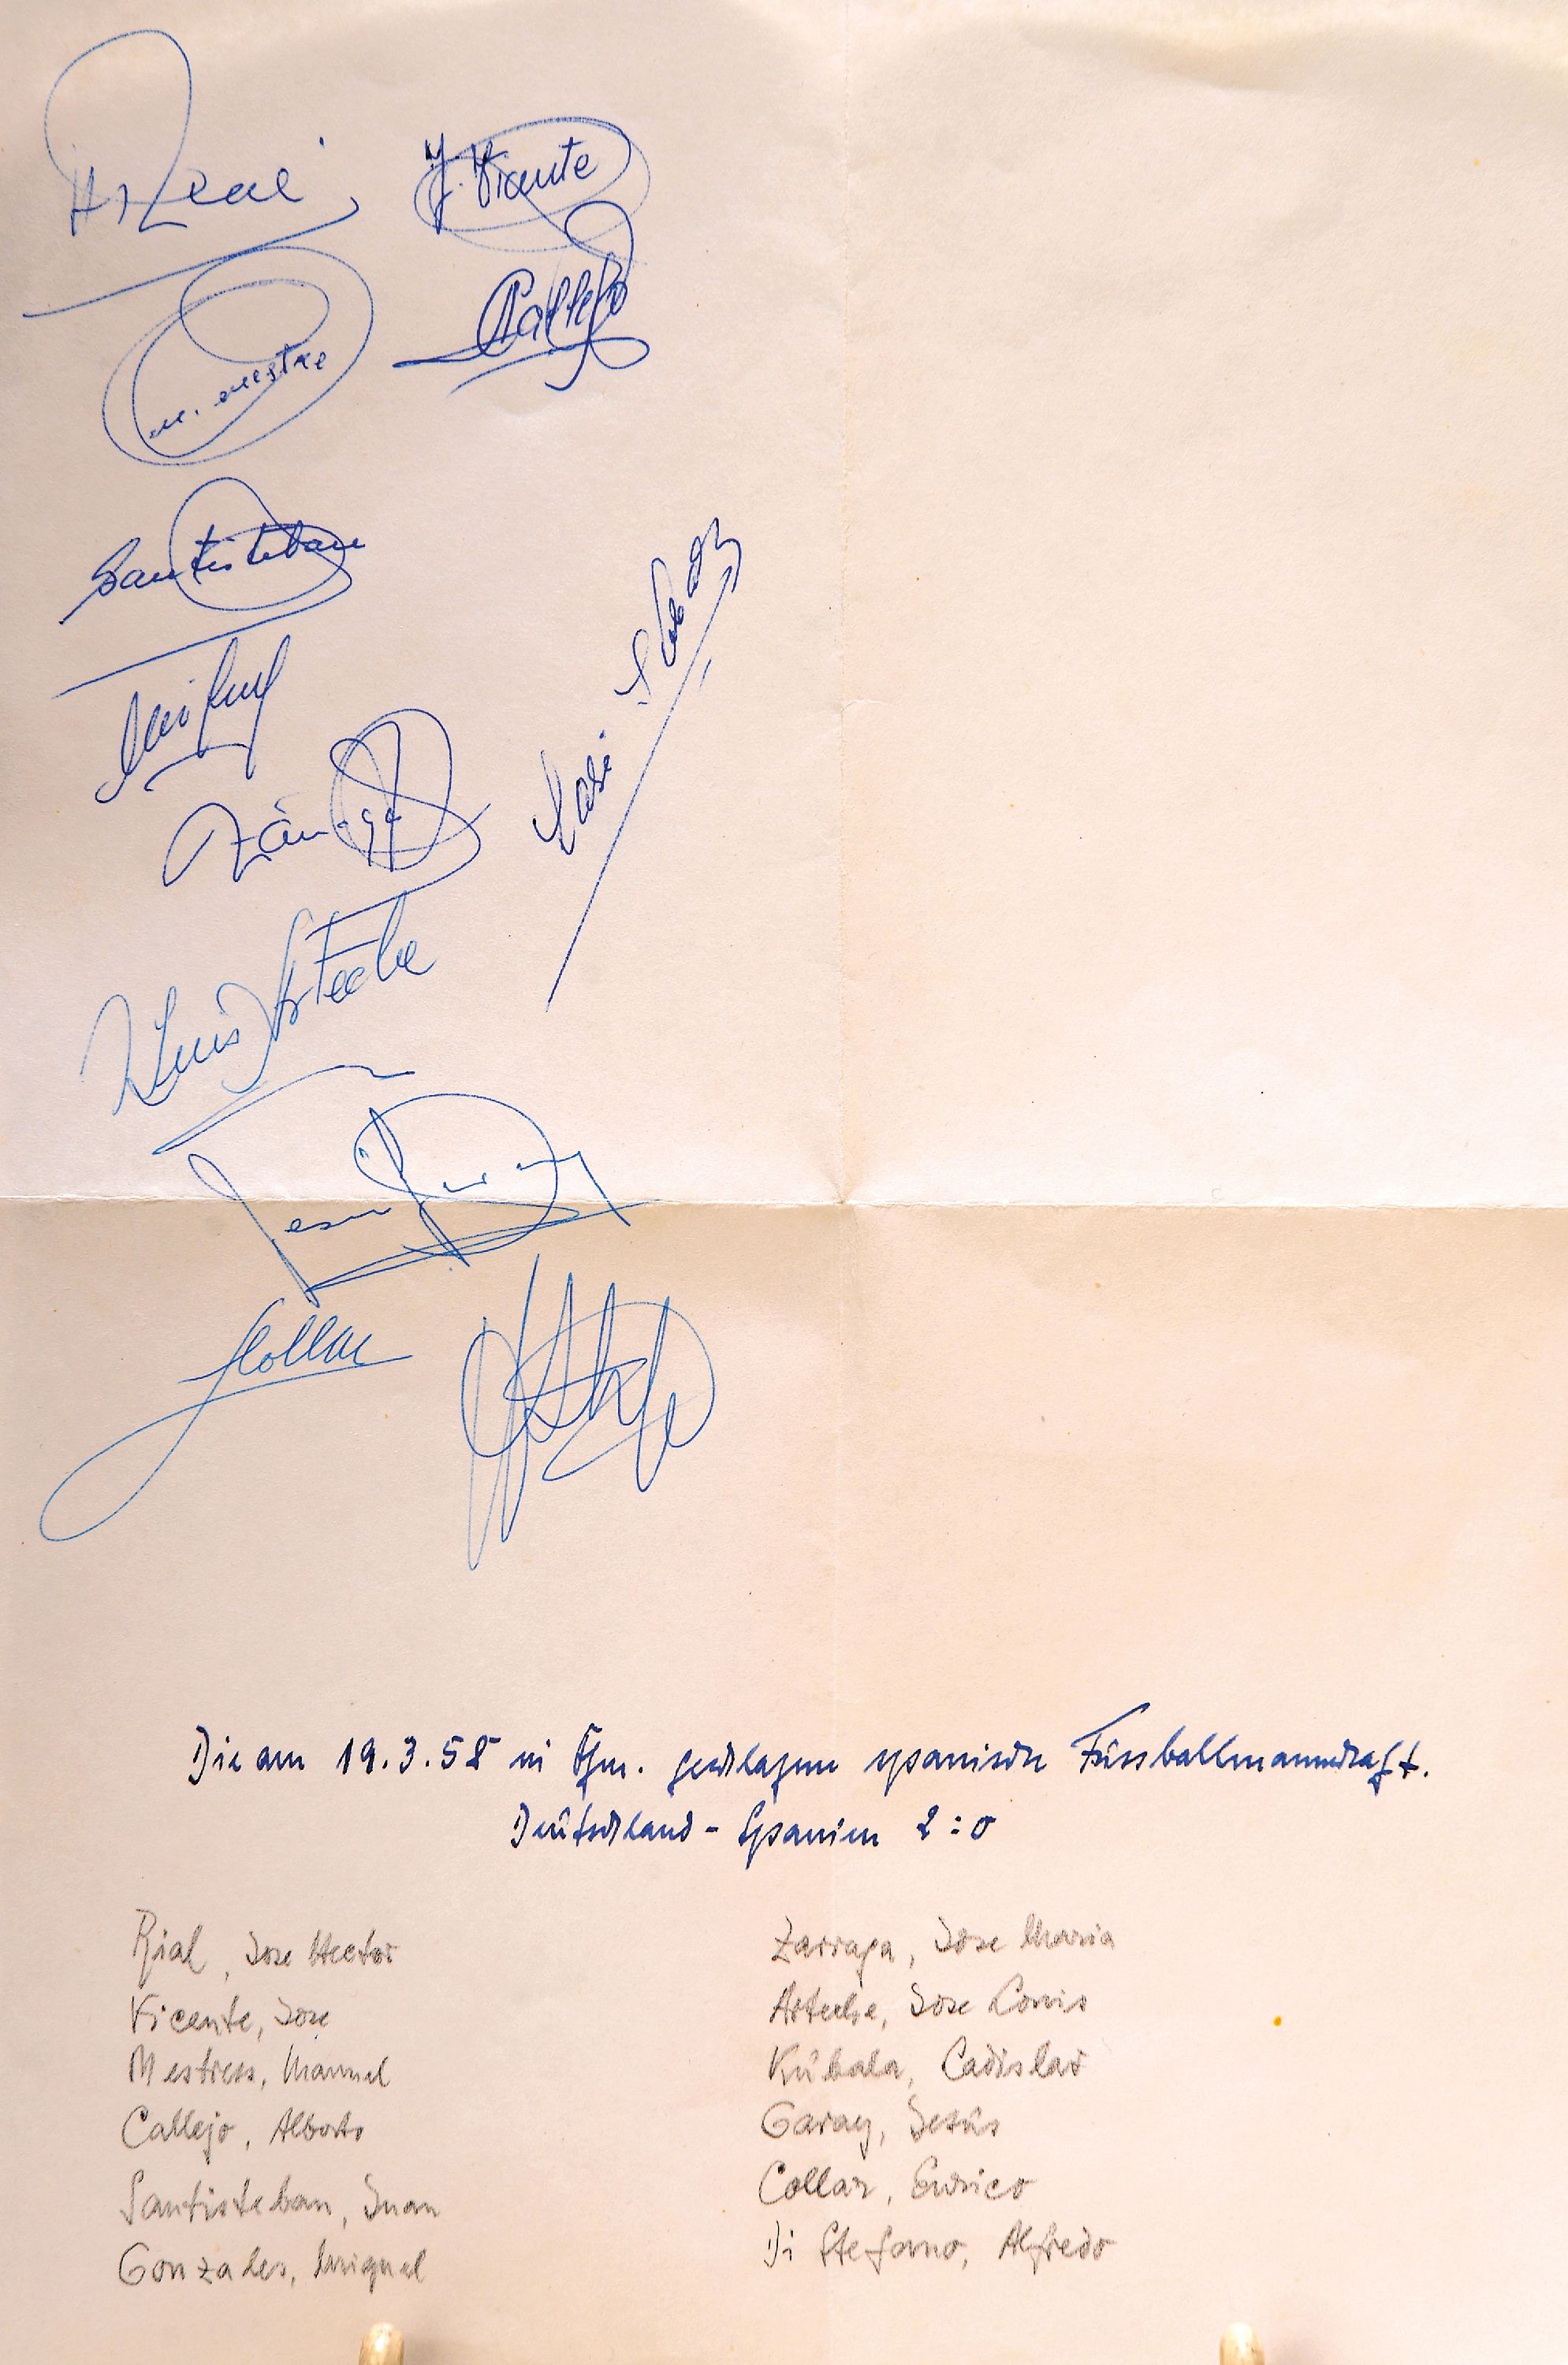 H. Rial
J. Vicente
Callejo
M. Mestre
Santisteban
Luis Arteche
Jesus Garay
Collar
Die am 19.3.58 in Ffm. geschlagene spanische Fussballmannschaft.
Deutschland - Spanien 2:0
Rial, Jose Hector
Vicente, Jose
Mestress, Manuel
Callejo, Alberto
Santisteban, Juan
Gonzales, Miguel
Zarraga, Jose Maria
Arteche, Jose Louis
Kubala, Ladislav
Garay, Jesus
Collar, Enrico
Di Stefano, Alfredo